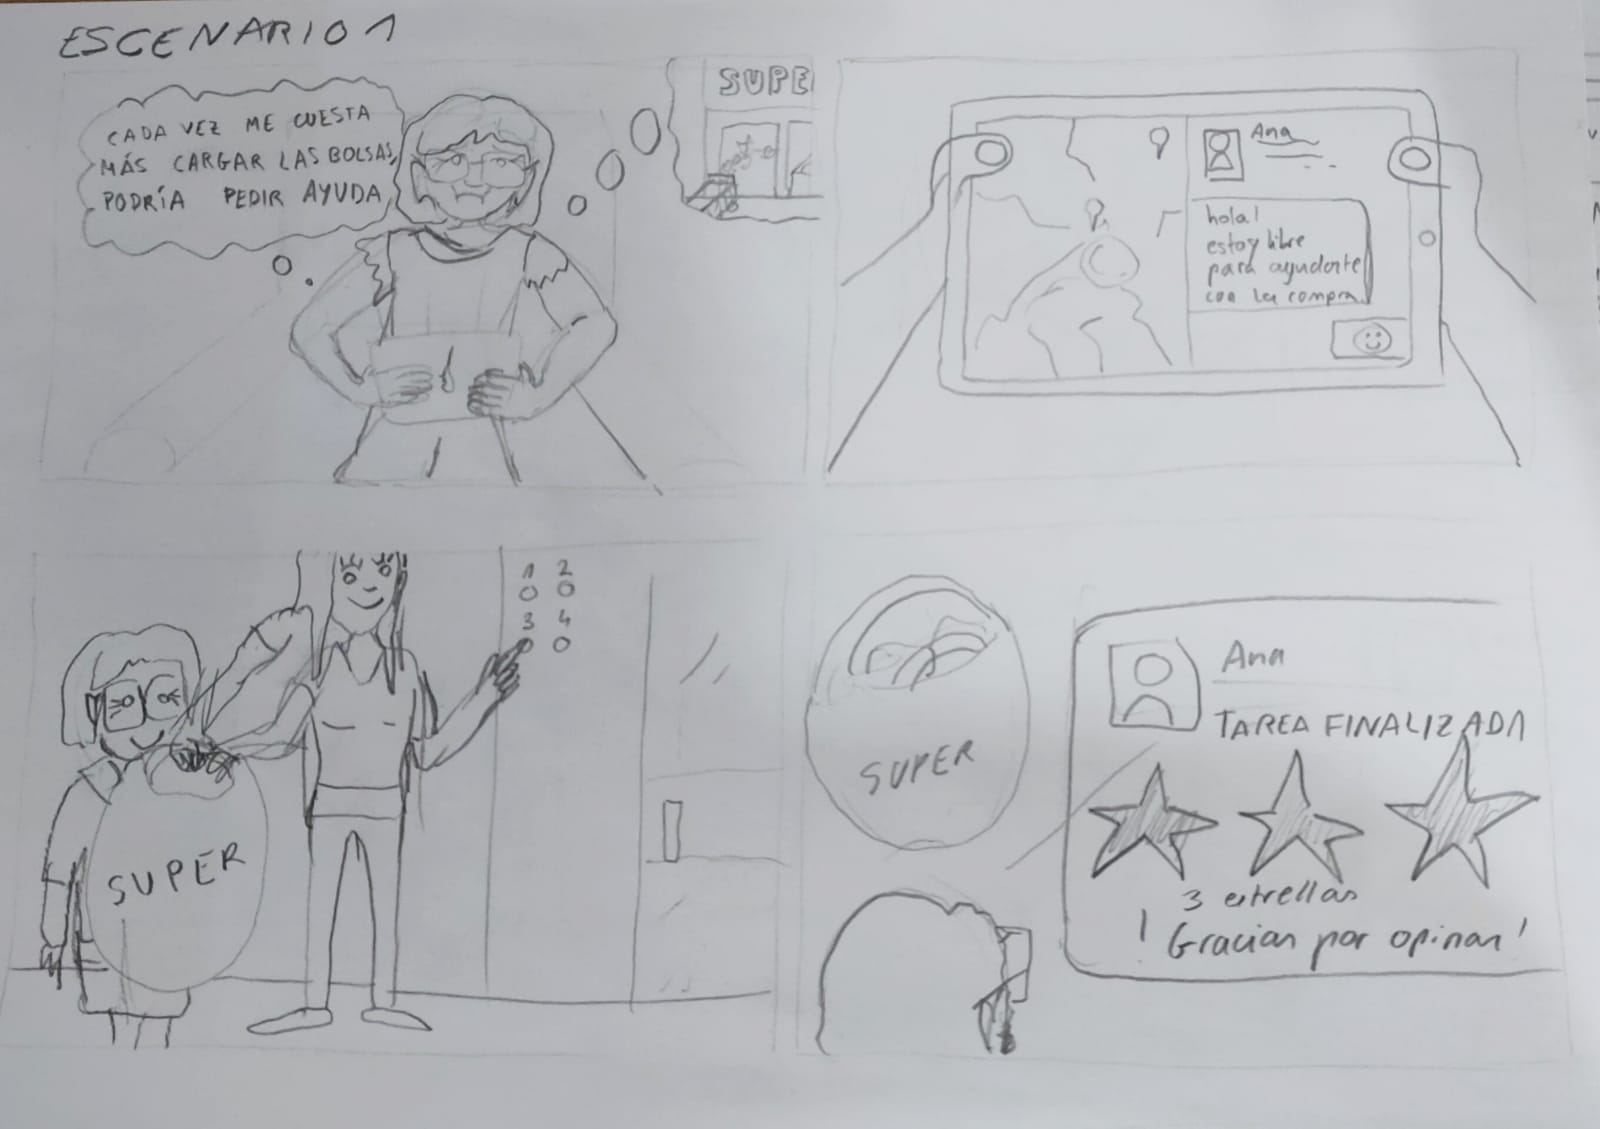 ESCENARIO 1
CADA VEZ ME CUESTA
MÁS CARGAR LAS BOLSAS,
PODRÍA PEDIR AYUDA
SUPE
Ana
hola!
estoy libre
para ayudarte
con la compra
1 2
3 4
SUPER
SUPER
Ana
TAREA FINALIZADA
3 estrellas
! Gracias por opinar!